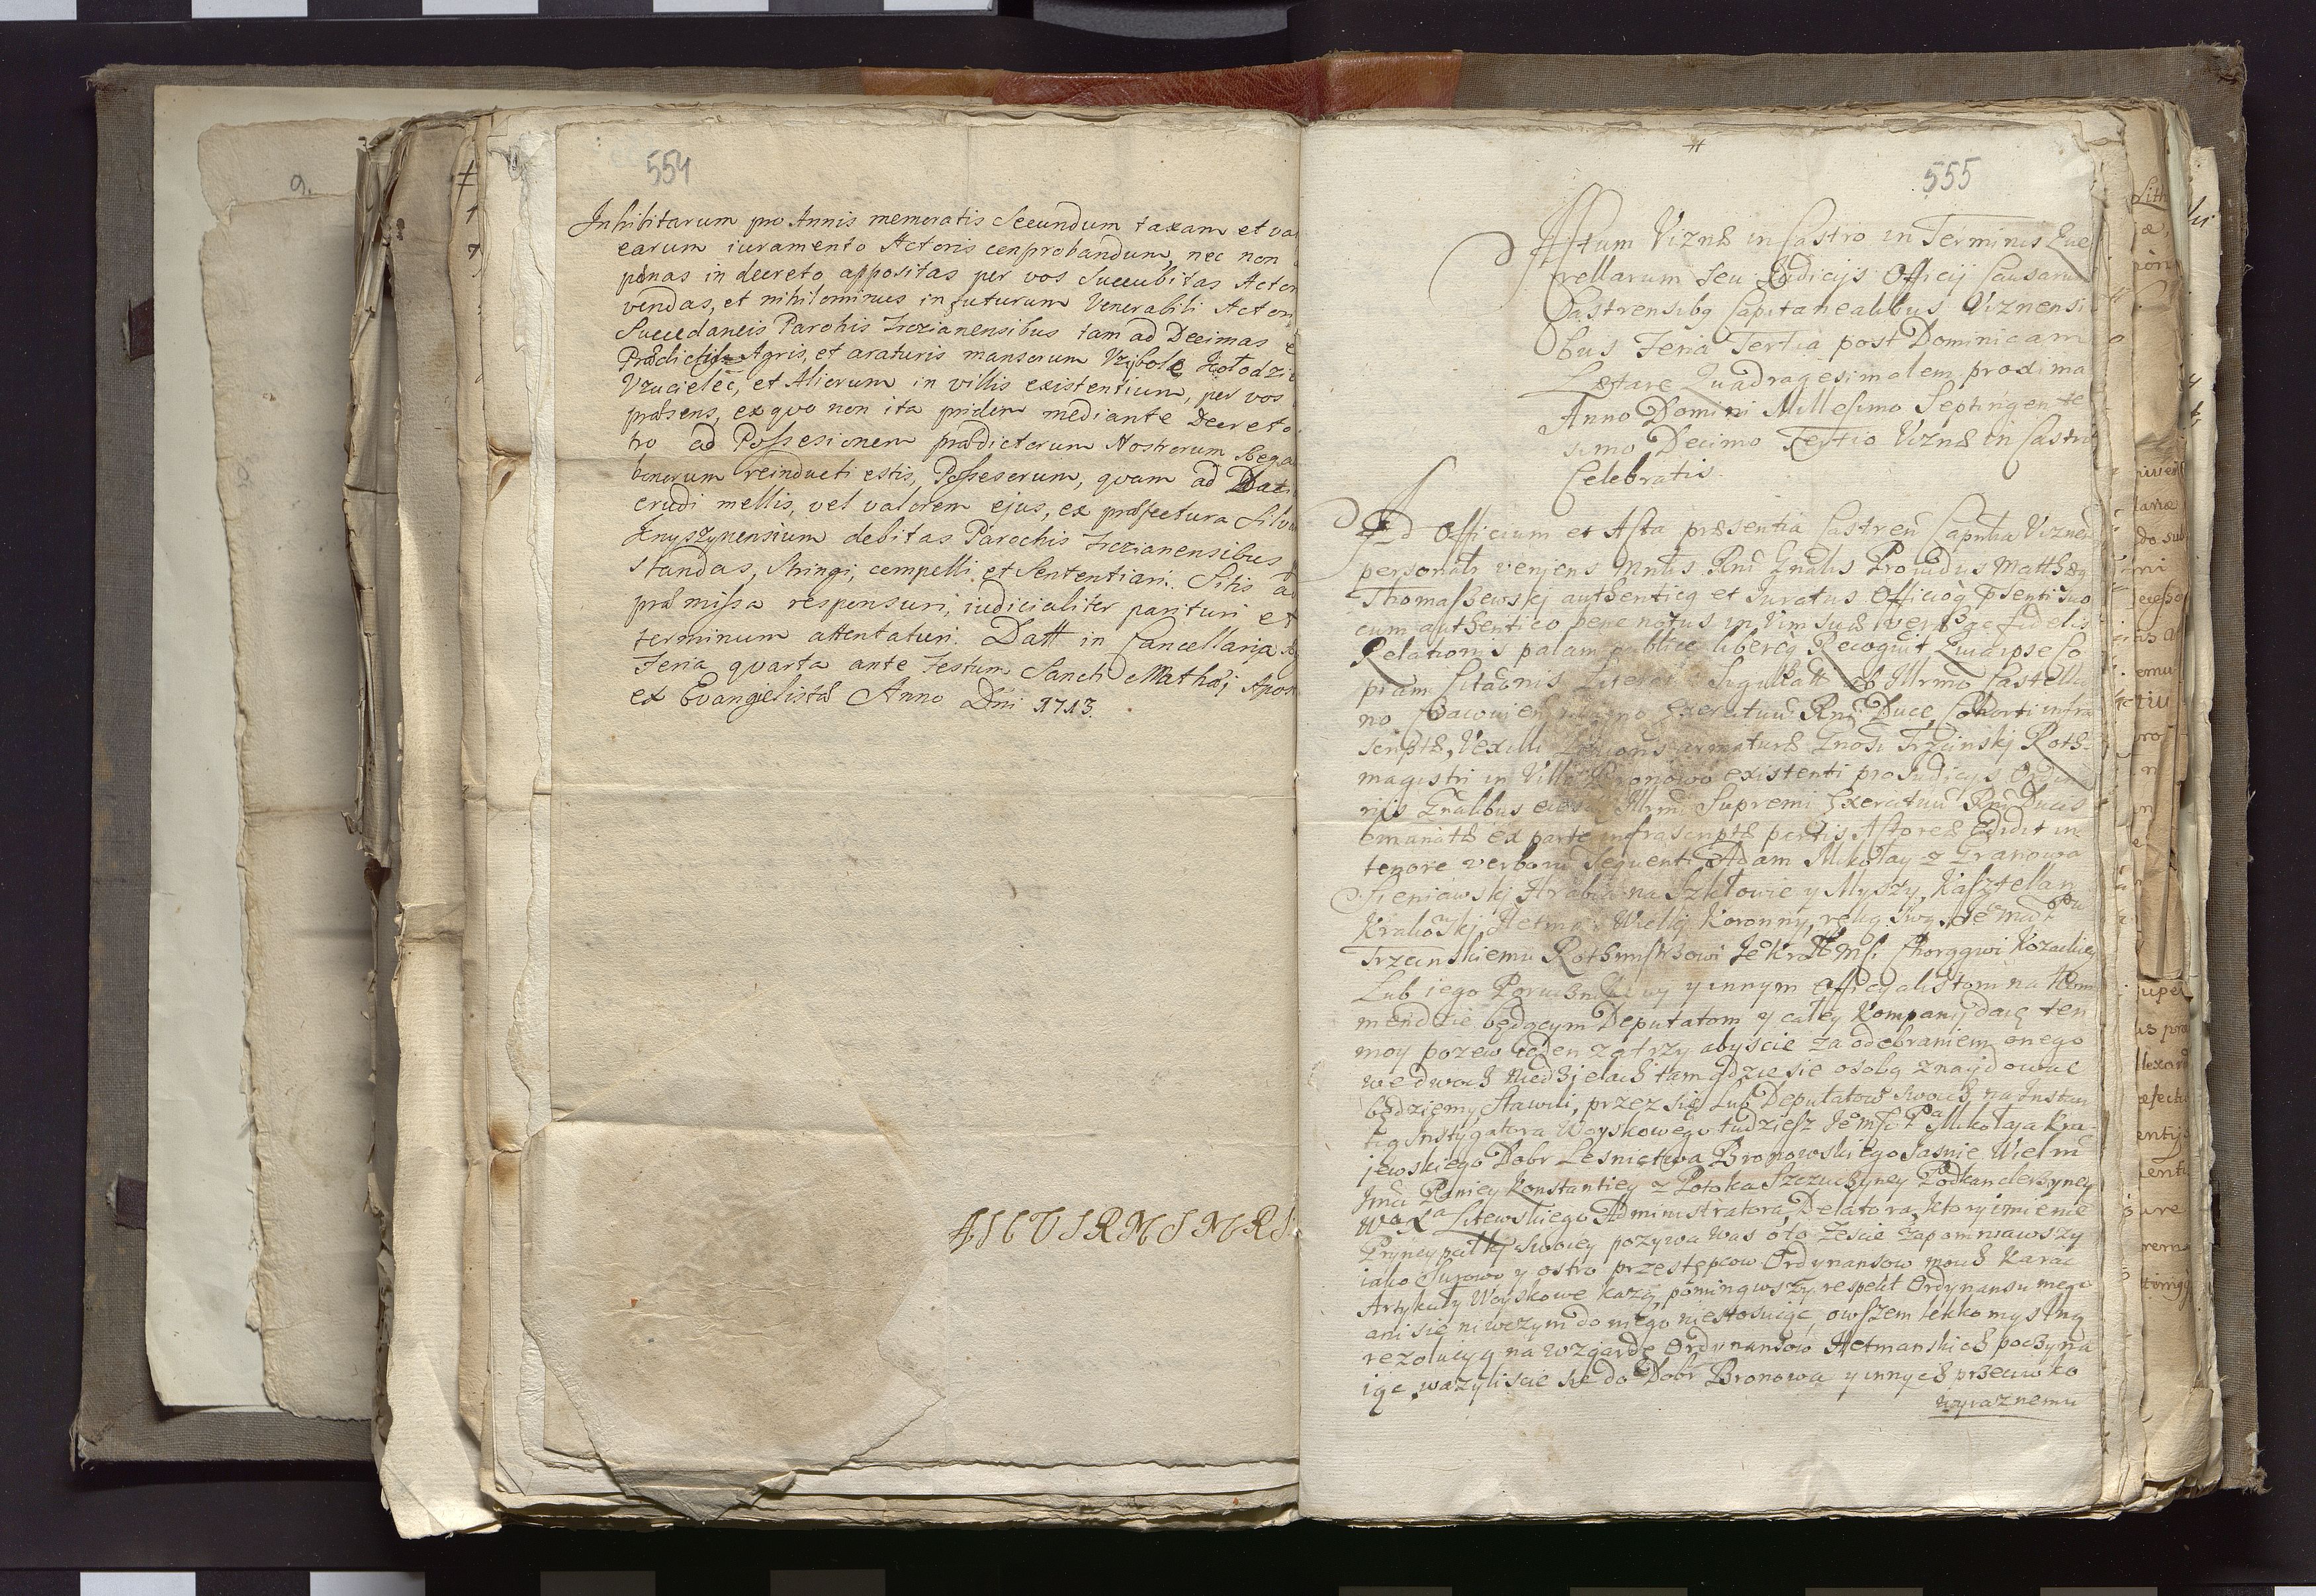 554
Inhibitarum pro Annis memoratis Secundum taxam et va
earum iuramento Actoris comprobandum, nec non
pænas in decreto appositas per vos Succubitas Actor
vendas, et nihilominus in futurum Venerabili Actori
Succedaneis Parohis Trzcianensibus tam ad Decimas e
Prædictis Agris, et araturis mansorum
et Aliorum in villis existentium, per vos
præsens, ex quo non ita pridem mediante Decreto
tro ad Possesionem prædictorum Nostrorum Rega
bonorum reinducti estis, Possesorum, quam ad
crudi mellis, vel valorem ejus, ex præfectura Silva
Knyszynensium debitas Parochis Trzcianensibus
standas, Stringi, compelli et Sententiari. Sitis ad
præmissa responsuri, iudicialiter parituri et
terminum attentaturi. Datt in Cancellaria
Feria quarta ante Festum Sancti Mathæi Apos
et Evangelistæ Anno Dni 1713.
555
Actum Viznæ in Castro in Terminis Que
rellarum seu Judicijs Officij Causarum
Castrensibq Capitanealibus Viznensi
bus Feria Tertia post Dominicam
Lætare Quadragesimalem proxima
Anno Domini Millesimo Septingente
simo Decimo Tertio Viznæ in Castro
Celebratis
Ad Officium et Acta præsentia Castren Viznen
personalr veniens Mntis Rni Gnalis Providus Matthæq
Thomaszewskj authenticq et Juratus
cum authentico bene notus in Vim Suæ veræ qe fidelis
Relationis palam publice libereq Recognit Quia ipse
no Exercituu Rni Duce Cohorti infra
scriptæ, Vexilli armaturæ Gnosi Trzcinskj Roth-
magistri in Villa Bronowo existenti pro Judicijs Ordina
rijs Gnalibus Supremi Exercituu Rni Ducis
emanatæ ex parte infrascriptæ partis Actoreæ Edidit in
tenore verborum Sequenti Adam Mikołay z Granowa
Sieniawskj Hrabia na Szkłowie y Myszy, Kasztellan
Krakowskj, Hetman Wielkj Koronny,
Trzcinskiemu Rothmistrzowi JeKro Mści Chorągwi Kozackiey
Lub iego Porucznikowi y innym Officyalistom na Kom
mendzie będącym Deputatom y całey Kompanij daię ten
moy pozew ieden za trzy abyscie za odebraniem onego
we dwoch Niedzielach tam gdzie sie osobą znaydowac
będziemy Stawili, przez się Lub Deputatow Swoich na Instan
tią Instygatora Woyskowego tudziesz JeMści Pa Mikołaja Kra-
jewskiego Dobr Lesnictwa Bronowskiego Jasnie Wielm
Jmci Paniey Konstantiey z Potoka Szczuczyney Podkanclerzyney
Wo Xa Litewskiego Administratora, Delatora, ktory imienie
Pryncypałki Swoiey pozywa Was o to Zescie zapomniawszy
iako Surowo y ostro przestępcow Ordynansow moich karac
Artykuły Woyskowe każą, pominąwszy respekt Ordynansu mego
ani się niwczym do niego niestosuiąc, owszem lekkomyslną
rezolucyą na wzgardę Ordynansow Hetmanskich poczyna
iąc, ważyliscie się do Dobr Bronowa y innych przeciwko
wyraznemu